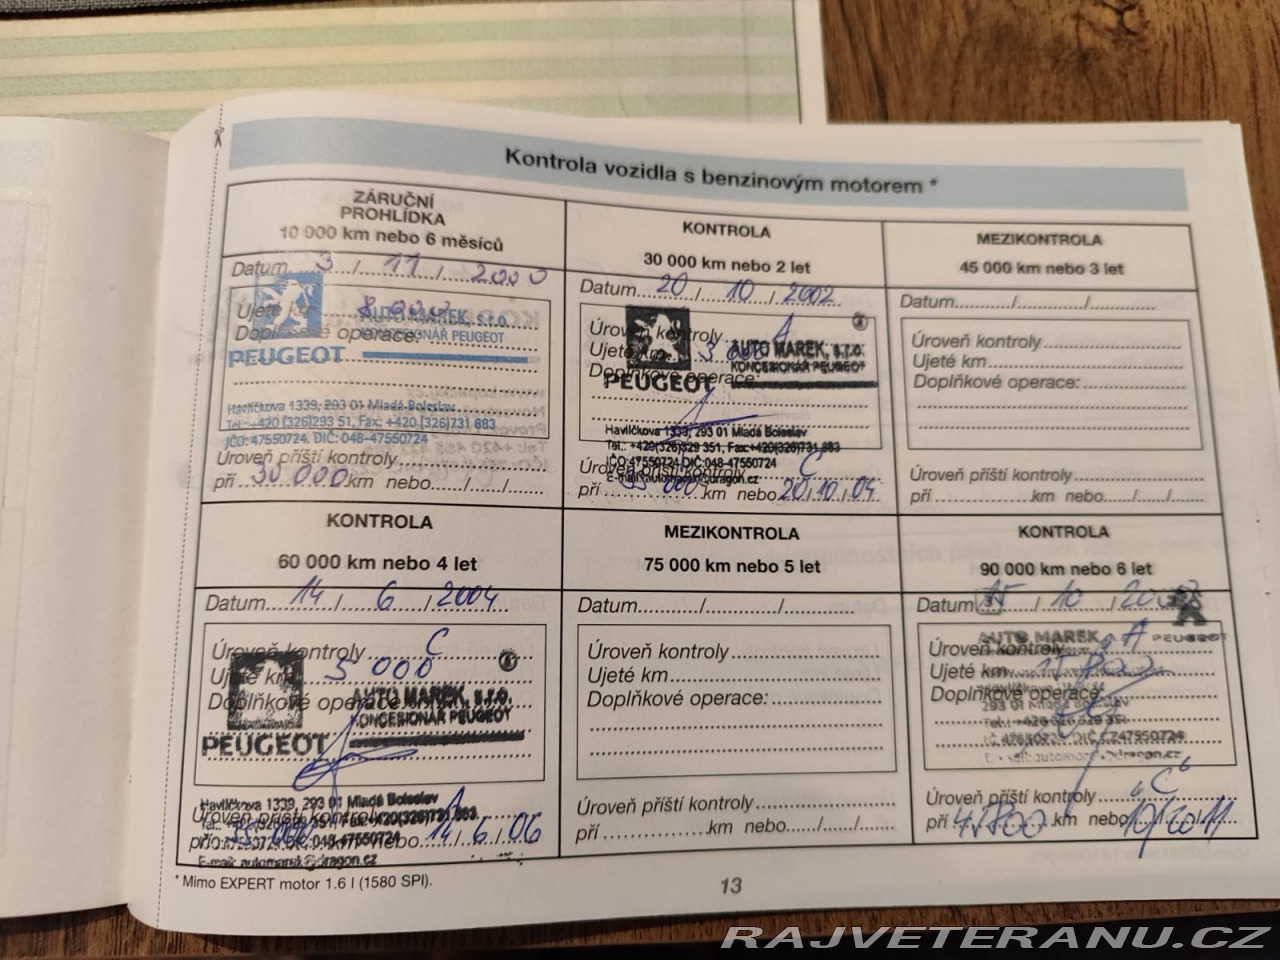 Kontrola vozidla s benzinovým motorem *
ZÁRUČNÍ
PROHLÍDKA
10 000 km nebo 6 měsíců
Datum 3 / 11 / 2000
Ujeté km 8 000
Doplňkové operace:
AUTO MAREK, s.r.o.
KONCESIONÁŘ PEUGEOT
PEUGEOT
Havlíčkova 1339, 293 01 Mladá Boleslav
Tel.: +420 (326)293 51, Fax: +420 (326)731 883
IČO: 47550724, DIČ: 048-47550724
Úroveň příští kontroly
při 30 000 km nebo...../...../.......
KONTROLA
30 000 km nebo 2 let
Datum 20 / 10 / 2002
Úroveň kontroly A
Ujeté km
Doplňkové operace:
AUTO MAREK, s.r.o.
KONCESIONÁŘ PEUGEOT
PEUGEOT
Havlíčkova 1339, 293 01 Mladá Boleslav
Tel.: +420(326)329 351, Fax:+420(326)731 883
IČO:47550724 DIČ:048-47550724
E-mail:automarek@dragon.cz
Úroveň příští kontroly C
při km nebo 20/10/04
MEZIKONTROLA
45 000 km nebo 3 let
Datum........../........../..........
Úroveň kontroly
Ujeté km
Doplňkové operace:
Úroveň příští kontroly
při ................km nebo....../....../.......
KONTROLA
60 000 km nebo 4 let
Datum 14 / 6 / 2004
Úroveň kontroly C
Ujeté km 5 000
Doplňkové operace:
AUTO MAREK, s.r.o.
KONCESIONÁŘ PEUGEOT
PEUGEOT
Havlíčkova 1339, 293 01 Mladá Boleslav
Úroveň příští kontroly A
při km nebo 14/6/06
E-mail: automarek@dragon.cz
MEZIKONTROLA
75 000 km nebo 5 let
Datum........../........../..........
Úroveň kontroly
Ujeté km
Doplňkové operace:
Úroveň příští kontroly
při ................km nebo....../....../.......
KONTROLA
90 000 km nebo 6 let
Datum / 10 /
PEUGEOT
AUTO MAREK
Úroveň kontroly "A
Ujeté km
Doplňkové operace:
293 01 Mladá Boleslav
DIČ CZ47550724
Úroveň příští kontroly "C"
při km nebo 10/2011
* Mimo EXPERT motor 1.6 l (1580 SPI).
13
RAJVETERANU.CZ